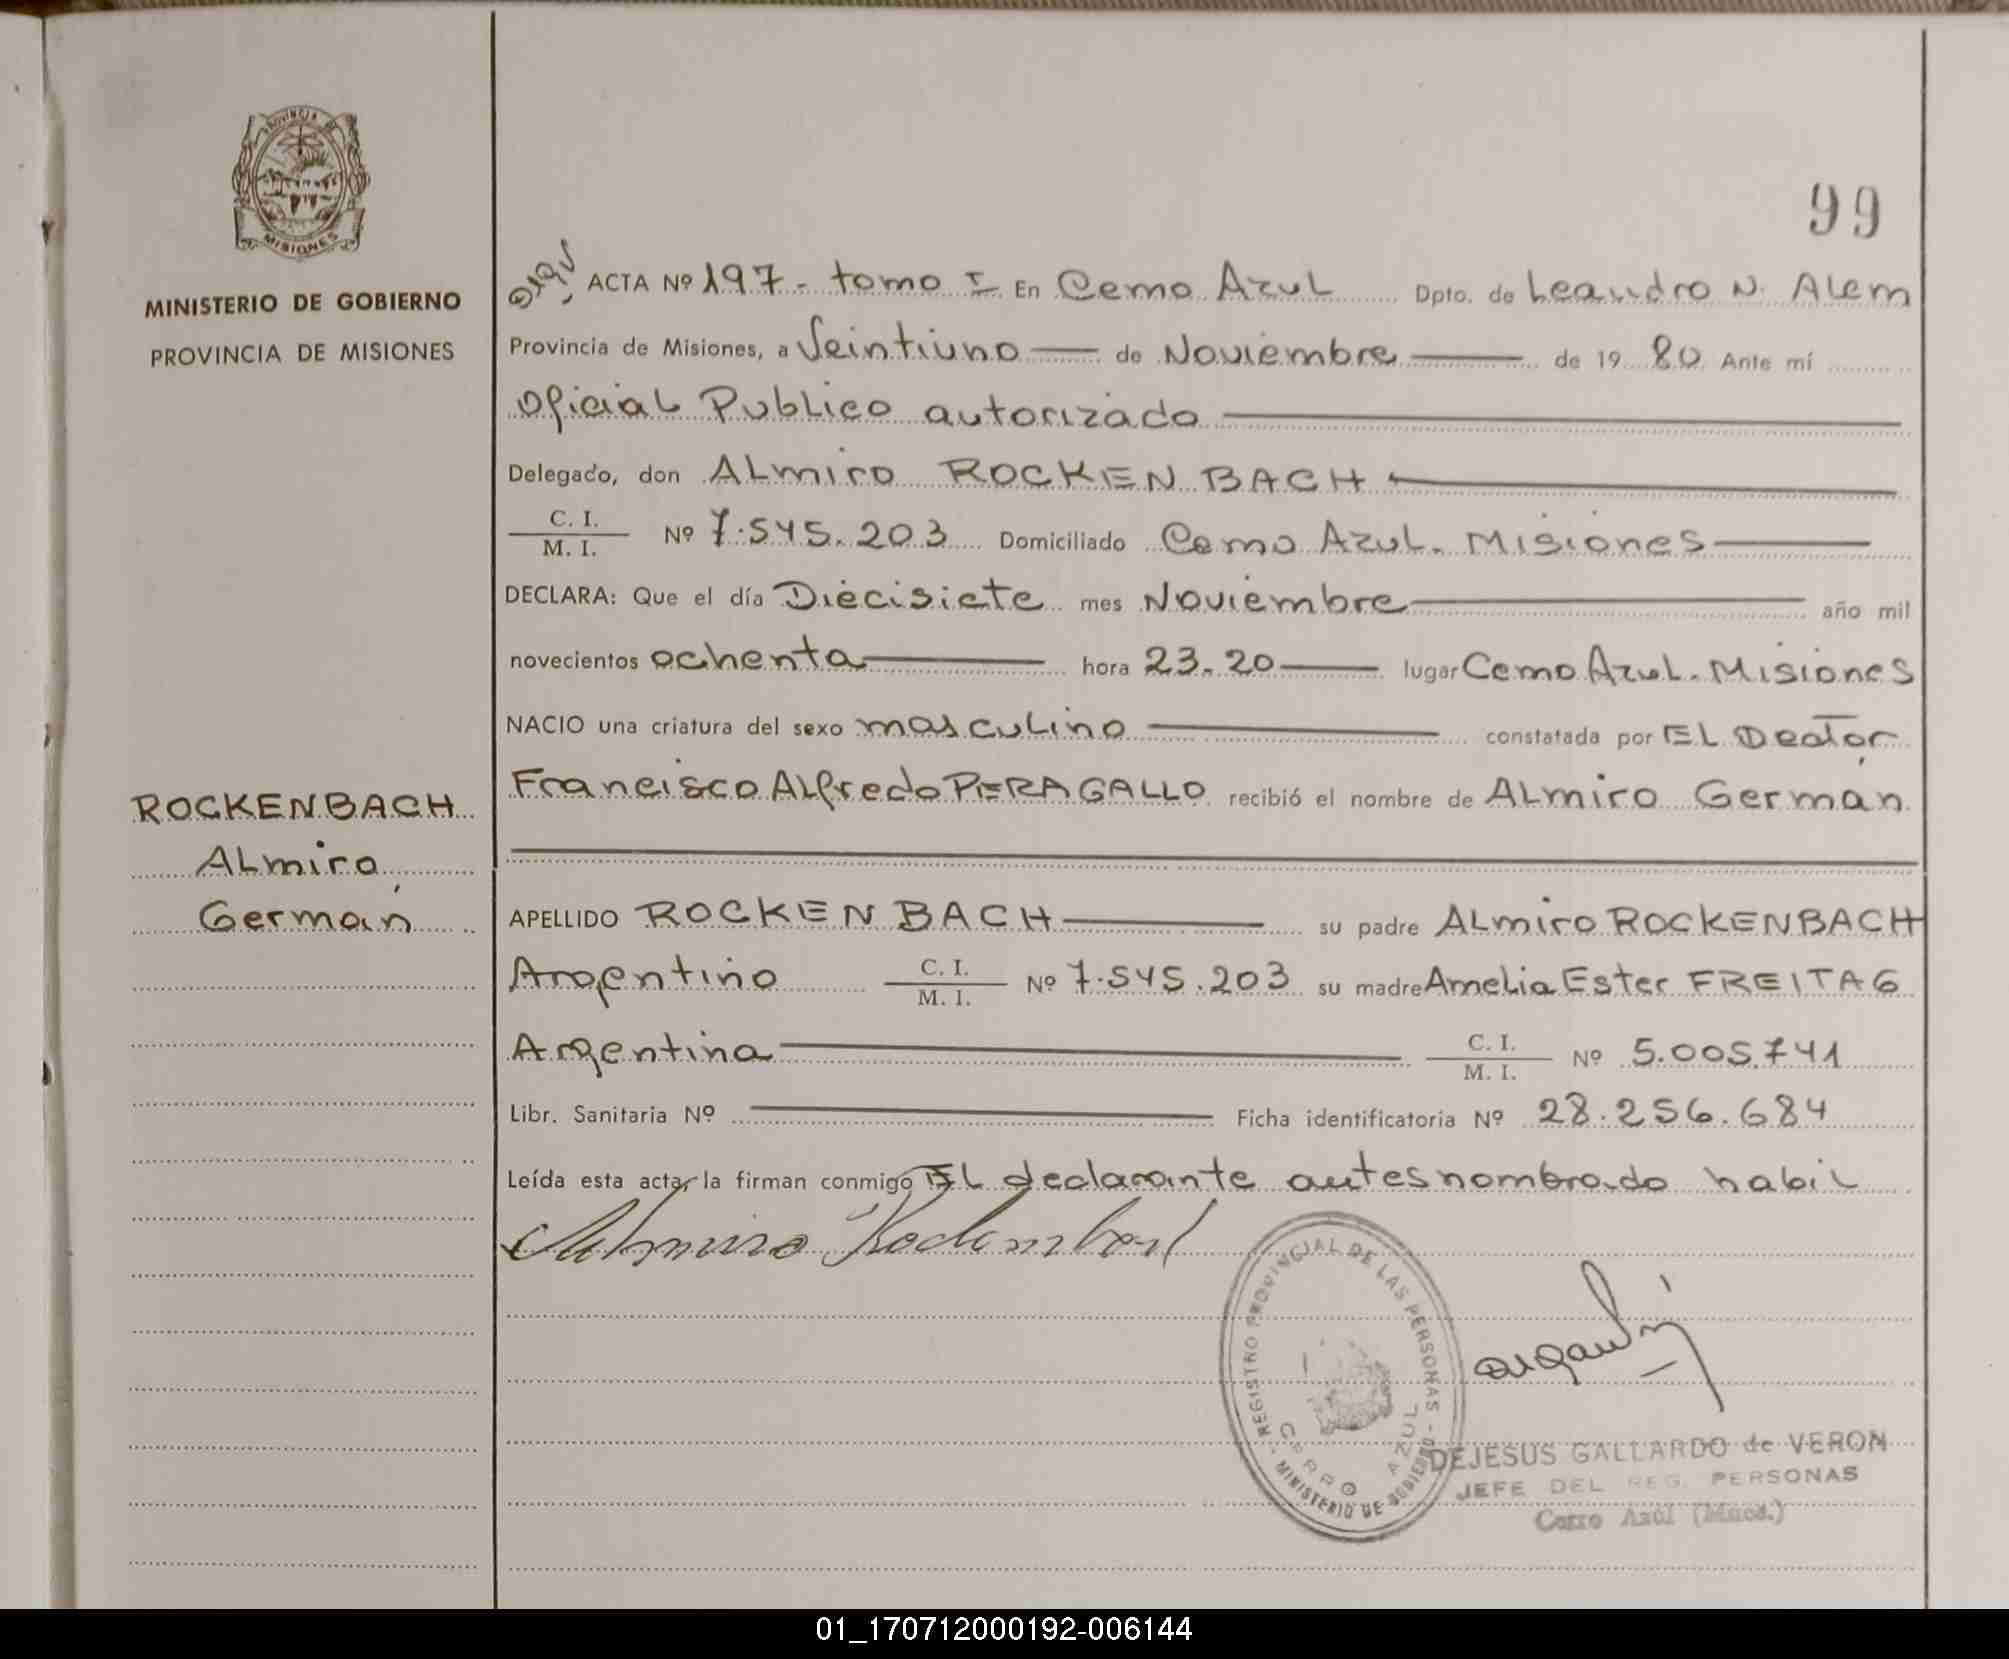 PROVINCIA DE
MISIONES
MINISTERIO DE GOBIERNO
PROVINCIA DE MISIONES
ROCKENBACH
ALmiro
Germán
99
ACTA Nº 197 - tomo I En Cerro Azul Dpto. de Leandro N. Alem
Provincia de Misiones, a Veintiuno de Noviembre de 19 80 Ante mí
Oficial Publico autorizado
Delegado, don ALmiro ROCKENBACH
C. I.
M. I. Nº 7.545.203 Domiciliado Cerro Azul. Misiones
DECLARA: Que el día Diecisiete mes Noviembre año mil
novecientos ochenta hora 23.20 lugar Cerro Azul. Misiones
NACIO una criatura del sexo masculino constatada por EL Doctor
Francisco Alfredo PERAGALLO recibió el nombre de ALmiro Germán
APELLIDO ROCKENBACH su padre ALmiro ROCKENBACH
Argentino C. I. M. I. Nº 7.545.203 su madre Amelia Ester FREITAG
Argentina C. I. M. I. Nº 5.005.741
Libr. Sanitaria Nº Ficha identificatoria Nº 28.256.684
Leída esta acta, la firman conmigo EL declarante antesnombrado habil
Almiro Rockenbach
REGISTRO PROVINCIAL DE LAS PERSONAS - MINISTERIO DE GOBIERNO -
CERRO AZUL
DEJESUS GALLARDO de VERON
JEFE DEL REG. PERSONAS
Cerro Azúl (Mnes.)
01_170712000192-006144